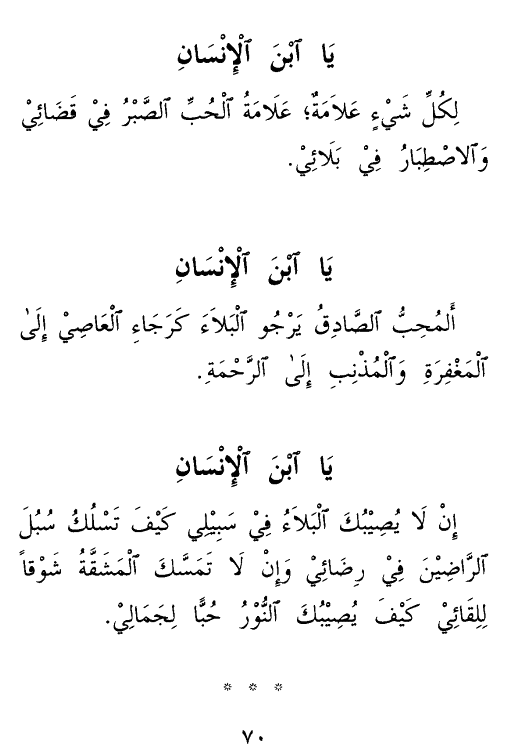 يَا ٱبْنَ ٱلْإِنْسَانِ
لِكُلِّ شَيْءٍ عَلَامَةٌ؛ عَلَامَةُ ٱلْحُبِّ ٱلصَّبْرُ فِيْ قَضَائِيْ
وَٱلاصْطِبَارُ فِيْ بَلَائِيْ.
يَا ٱبْنَ ٱلْإِنْسَانِ
أَلمُحِبُّ ٱلصَّادِقُ يَرْجُو ٱلْبَلَاءَ كَرَجَاءِ ٱلْعَاصِيْ إِلَىٰ
ٱلْمَغْفِرَةِ وَٱلْمُذْنِبِ إِلَىٰ ٱلرَّحْمَةِ.
يَا ٱبْنَ ٱلْإِنْسَانِ
إِنْ لَا يُصِيْبُكَ ٱلْبَلَاءُ فِيْ سَبِيْلِي كَيْفَ تَسْلُكُ سُبُلَ
ٱلرَّاضِيْنَ فِيْ رِضَائِيْ وَإِنْ لَا تَمَسَّكَ ٱلْمَشَقَّةُ شَوْقاً
لِلِقَائِيْ كَيْفَ يُصِيْبُكَ ٱلنُّوْرُ حُبًّا لِجَمَالِيْ.
* * *
٧٠